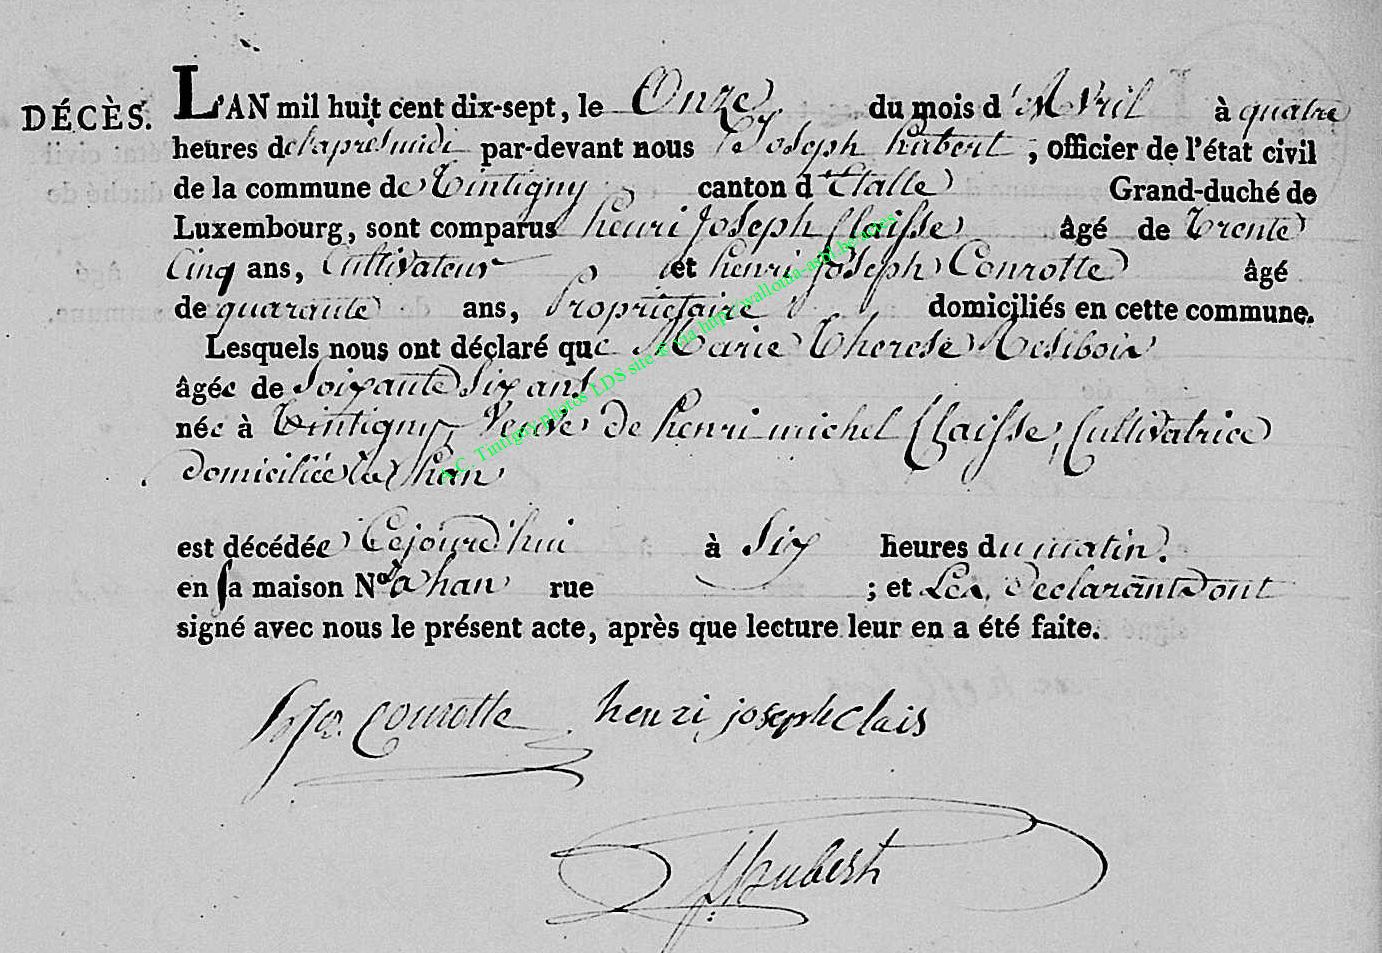 DÉCÈS. L'AN mil huit cent dix-sept, le Onze du mois d'Avril à quatre
heures de l'apres midi par-devant nous Joseph hubert, officier de l'état civil
de la commune de Tintigny canton d'Etalle Grand-duché de
Luxembourg, sont comparus henri Joseph Claisse âgé de Trente
Cinq ans, Cultivateur et henri Joseph Conrotte âgé
de quarante ans, Propriétaire domiciliés en cette commune.
Lesquels nous ont déclaré que Marie Therese Resibois
âgée de Soixante Six ans
née à Tintigny Veuve de henri michel Claisse, Cultivatrice
domiciliée à han
est décédée Cejourd'hui à Six heures du matin.
en sa maison No. à han rue ; et Les Declarants ont
signé avec nous le présent acte, après que lecture leur en a été faite.
conrotte henri joseph Clais
Hubert
A.C. Tintigny photos LDS site via http://wallonia-asbl.be/actes